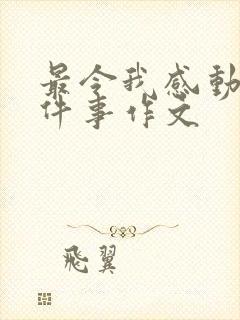 最令我感動
件事作文
飛翼